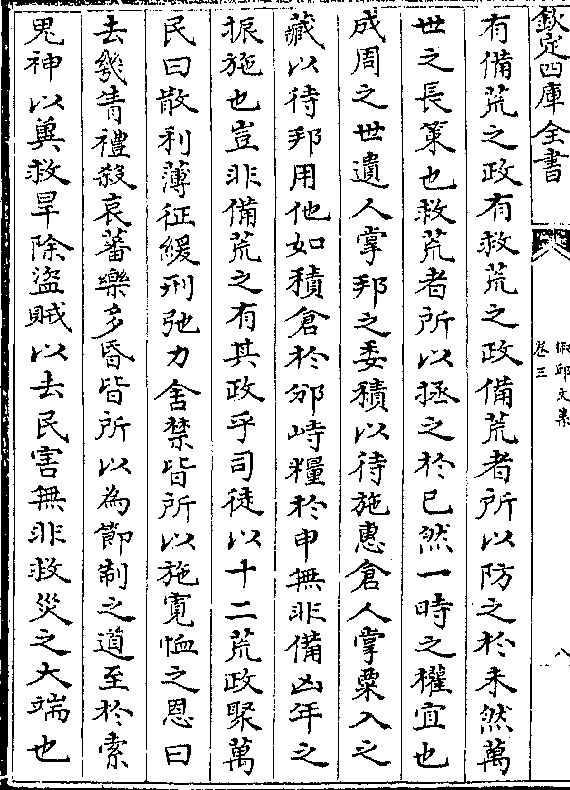 欽定四庫全書
椒邱文集
卷三
八
有備荒之政有救荒之政備荒者所以防之於未然萬
世之長策也救荒者所以拯之於已然一時之權宜也
成周之世遺人掌邦之委積以待施惠倉人掌粟入之
藏以待邦用他如積倉於邠峙糧於申無非備凶年之
振施也豈非備荒之有其政乎司徒以十二荒政聚萬
民曰散利薄征緩刑弛力舍禁皆所以施寛恤之恩曰
去幾眚禮殺哀蕃樂多昏皆所以為節制之道至於索
鬼神以冀救旱除盜賊以去民害無非救災之大端也